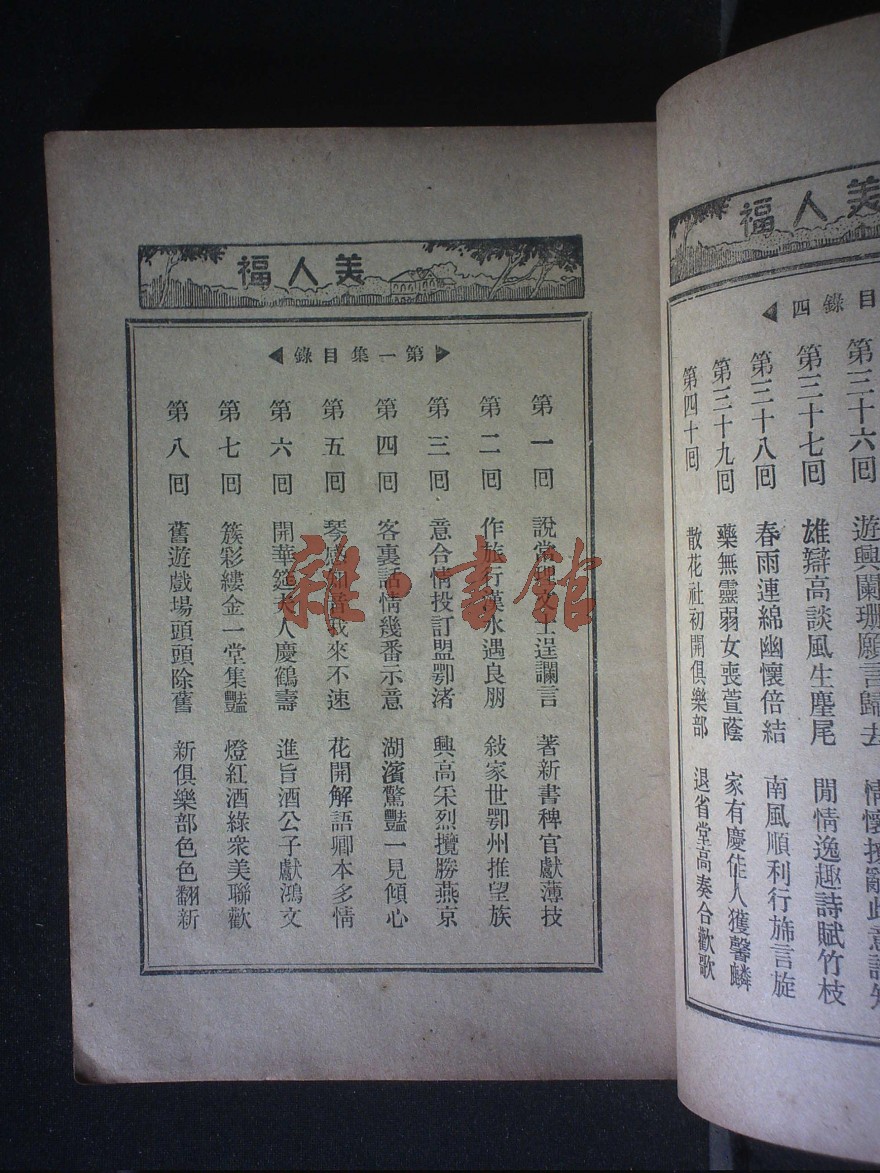 美人福
目錄四
第三十六回 遊興闌珊願言歸去 情懷撩亂此意誰知
第三十七回 雄辯高談風生麈尾 閒情逸趣詩賦竹枝
第三十八回 春雨連綿幽懷倍結 南風順利行旆言旋
第三十九回 藥無靈弱女喪萱蔭 家有慶佳人獲馨麟
第四十回 散花社初開俱樂部 退省堂高奏合歡歌
美人福
第一集目錄
第一回 說士逞讕言 著新書稗官獻薄技
第二回 作旅行漢水遇良朋 敍家世鄂州推望族
第三回 意合情投訂盟鄂渚 興高采烈攬勝燕京
第四回 客裏話情幾番示意 湖濱驚艷一見傾心
第五回 琴感知音我來不速 花開解語卿本多情
第六回 開華筵夫人慶鶴壽 進旨酒公子獻鴻文
第七回 簇彩縷金一堂集豔 燈紅酒綠衆美聯歡
第八回 舊遊戲場頭頭除舊 新俱樂部色色翻新
雜·書館